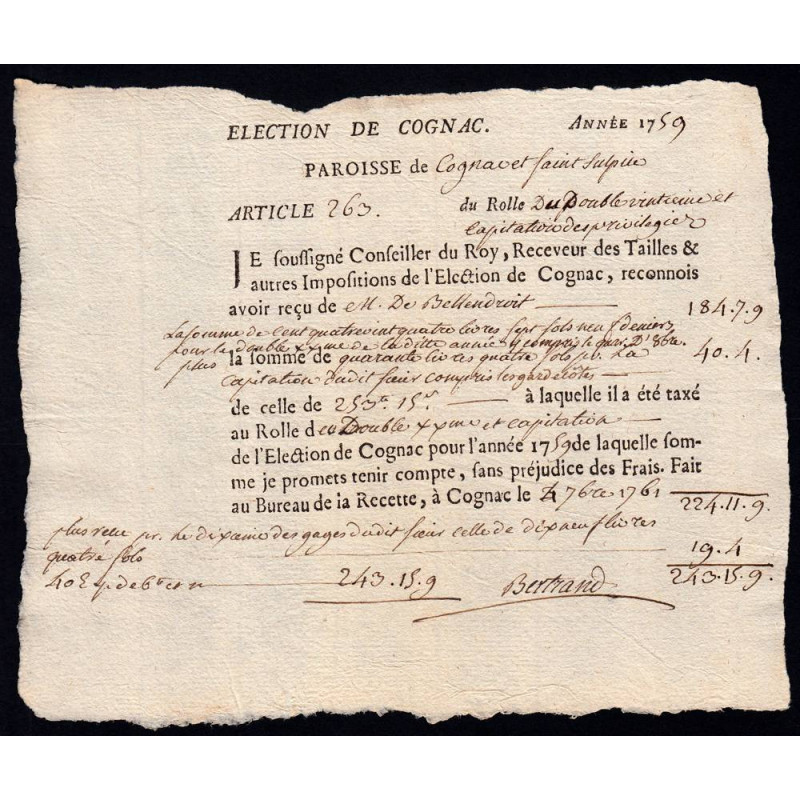 ELECTION DE COGNAC. ANNÉE 1759
PAROISSE de Cognac et Saint Sulpice
ARTICLE 263. du Rolle Du Double vintieme et
capitation des privilegiez
JE soussigné Conseiller du Roy, Receveur des Tailles &
autres Impositions de l'Election de Cognac, reconnois
avoir reçu de M. De Bellendroit 184.7.9
La somme de Cent quatrevint quatre livres sept sols neuf deniers
pour le double xxme de la ditte année y compris le D' 8bre
plus la somme de quarante livres quatre sols pr. La 40.4.
capitation dudit sieur compris les gardecôtes
de celle de 253tt 15s à laquelle il a été taxé
au Rolle du Double xxme et capitation
de l'Election de Cognac pour l'année 1759 de laquelle som-
me je promets tenir compte, sans préjudice des Frais. Fait
au Bureau de la Recette, à Cognac le 7bre 1761
224.11.9.
plus receu pr. Le dixaime des gages dudit sieur celle de dixneuf livres
quatre sols 19.4
243.15.9 Bertrand 243.15.9.